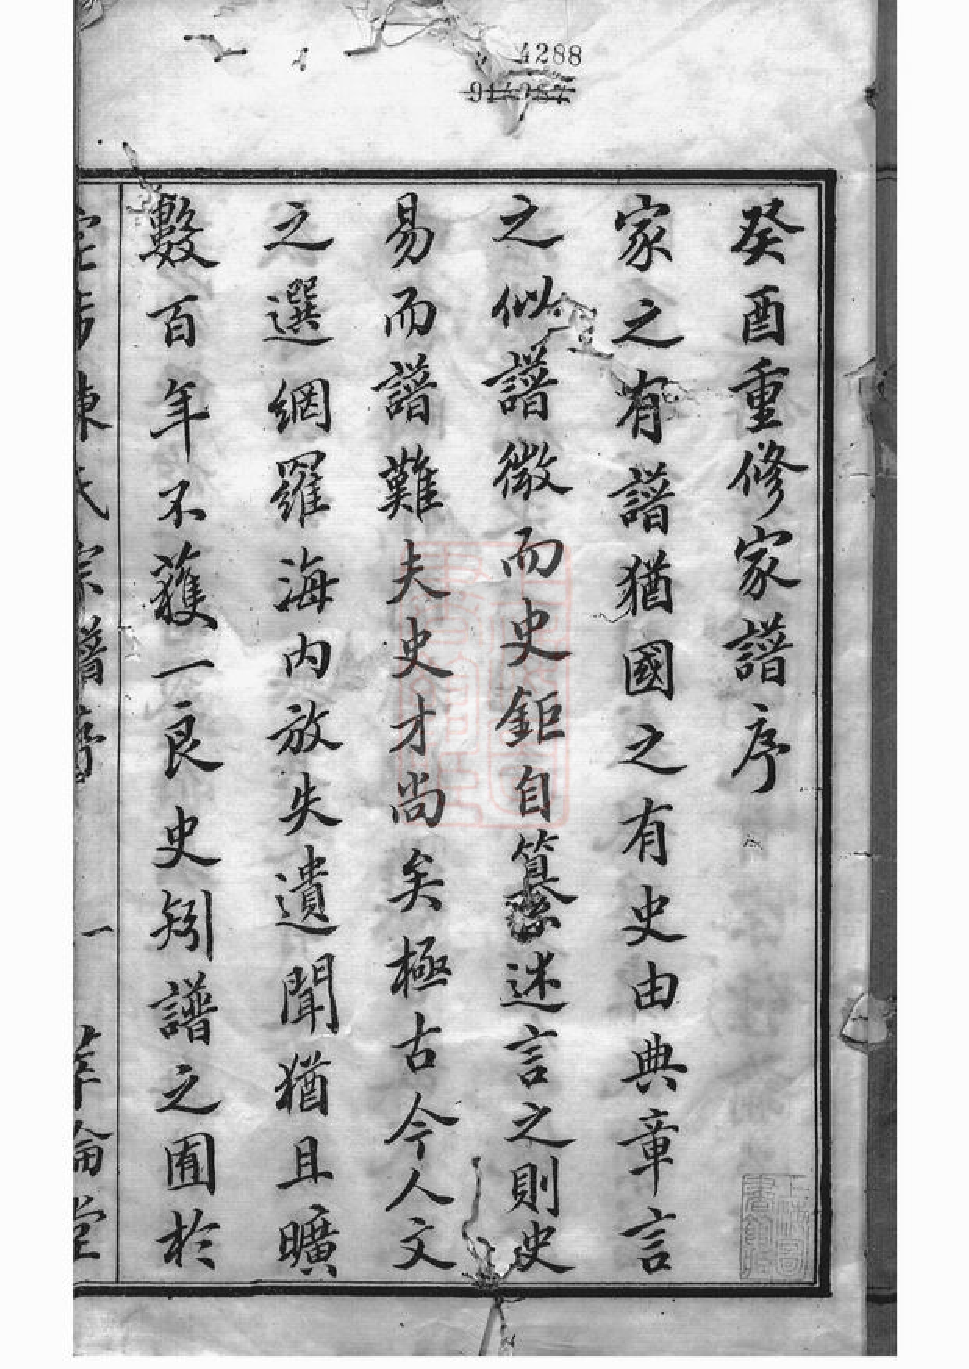 4288
癸酉重修家譜序
家之有譜猶國之有史由典章言
之似譜徵而史鉅自纂述言之則史
易而譜難夫史才尚矣極古今人文
之選網羅海内放失遺聞猶且曠
數百年不獲一良史矧譜之囿於
陳氏宗譜序 一 萃倫堂